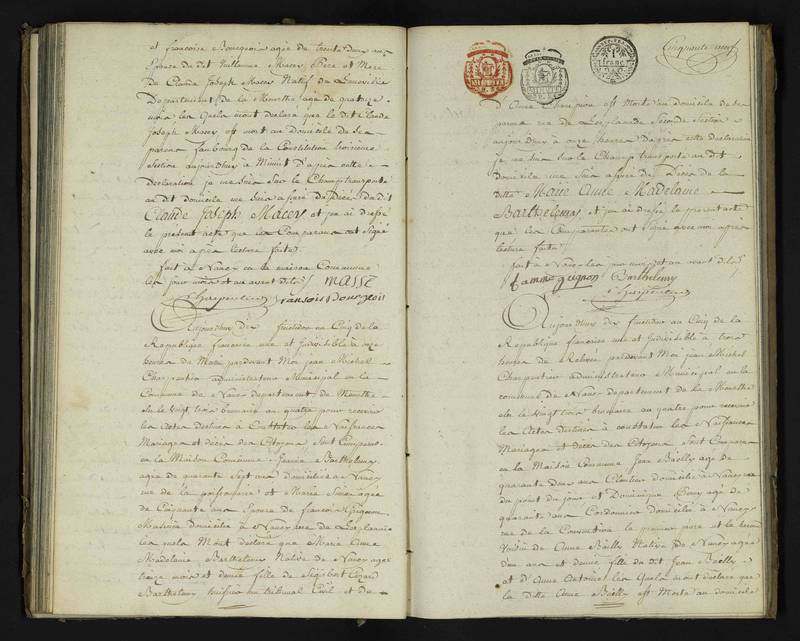 et francoise Bourgeois agée de trente deux ans
Epouse du dit Guillaume Maces Pere et Mere
De Claude Joseph Maces Natif de Luneville
Departement de la Meurthe agé de quatorze
mois les quels mont declaré que le dit Claude
Joseph Maces est mort au domicile de ses
parens faubourg de la Constitution troisieme
Section aujourdhuy à Minuit d'après cette
Declaration je me suis sur le Champ transporté
au dit domicile me suis assuré du Décès du dit
Claude Joseph Maces et jai dressé
le present acte que les Comparans ont Signé
avec moi après lecture faite.
fait à Nancy en la maison Commune
les jour mois et an avant dits MASSE
Charpentier fransois Bourgeois
Aujourdhuy dix fructidor an Cinq de la
Republique francoise une et Indivisible à
heures du Matin pardevant Moi jean Michel
Charpentier administrateur Municipal en la
Commune de Nancy departement de Meurthe
élu le vingt trois brumaire an quatre pour recevoir
les Actes destinés à Constater les Naissances
Mariages et décès des Citoyens Sont Comparus
en la Maison Commune Barthelemy
agée de quarante Sept ans domiciliée à Nancy
rue de la poissonnerie et Marie agée
de Cinquante ans Epouse de francois Guignon
domiciliée à Nancy rue de l'Esplanade
les quels Mont declaré que Marie Anne
Madelaine Barthelemy Native de Nancy agée
treize mois et demie fille de Sigisbert
Barthelemy huissier au tribunal Civil et de
Cinquante neuf
1 franc
d'Anne est Morte au domicile de ses
parens rue de L'esplanade Seconde Section
aujourdhuy à onze heures Daprès cette declaration
je me suis sur le Champ transporté au dit
domicile me suis assuré du Décès de la
ditte Marie Anne Madelaine
Barthelemy et jai dressé le present acte
que les Comparantes ont Signé avec moi après
lecture faite
fait à Nancy les jour mois et an avant dits
famme guignon Barthelemy
Charpentier
Aujourdhuy dix fructidor an Cinq de la
Republique francoise une et Indivisible à trois
heures de Relevée pardevant Moi jean Michel
Charpentier administrateur Municipal en la
commune de Nancy departement de la Meurthe
élu le vingt trois brumaire an quatre pour recevoir
les Actes Destinés à constater les Naissances
Mariages et décès des Citoyens Sont Comparus
en la Maison Commune Jean Bailly agé de
quarante Deux ans Cloutier domicilié à Nancy rue
du pont du jour et Dominique agé de
quarante ans Cordonnier Domicilié à Nancy
rue de la Convention le premier pere et le second
Voisin de Anne Bailly Native De Nancy agée
d'un an et demie fille du dit Jean Bailly
et d'Anne Antoine les quels mont declaré que
la ditte Anne Bailly est Morte au domicile